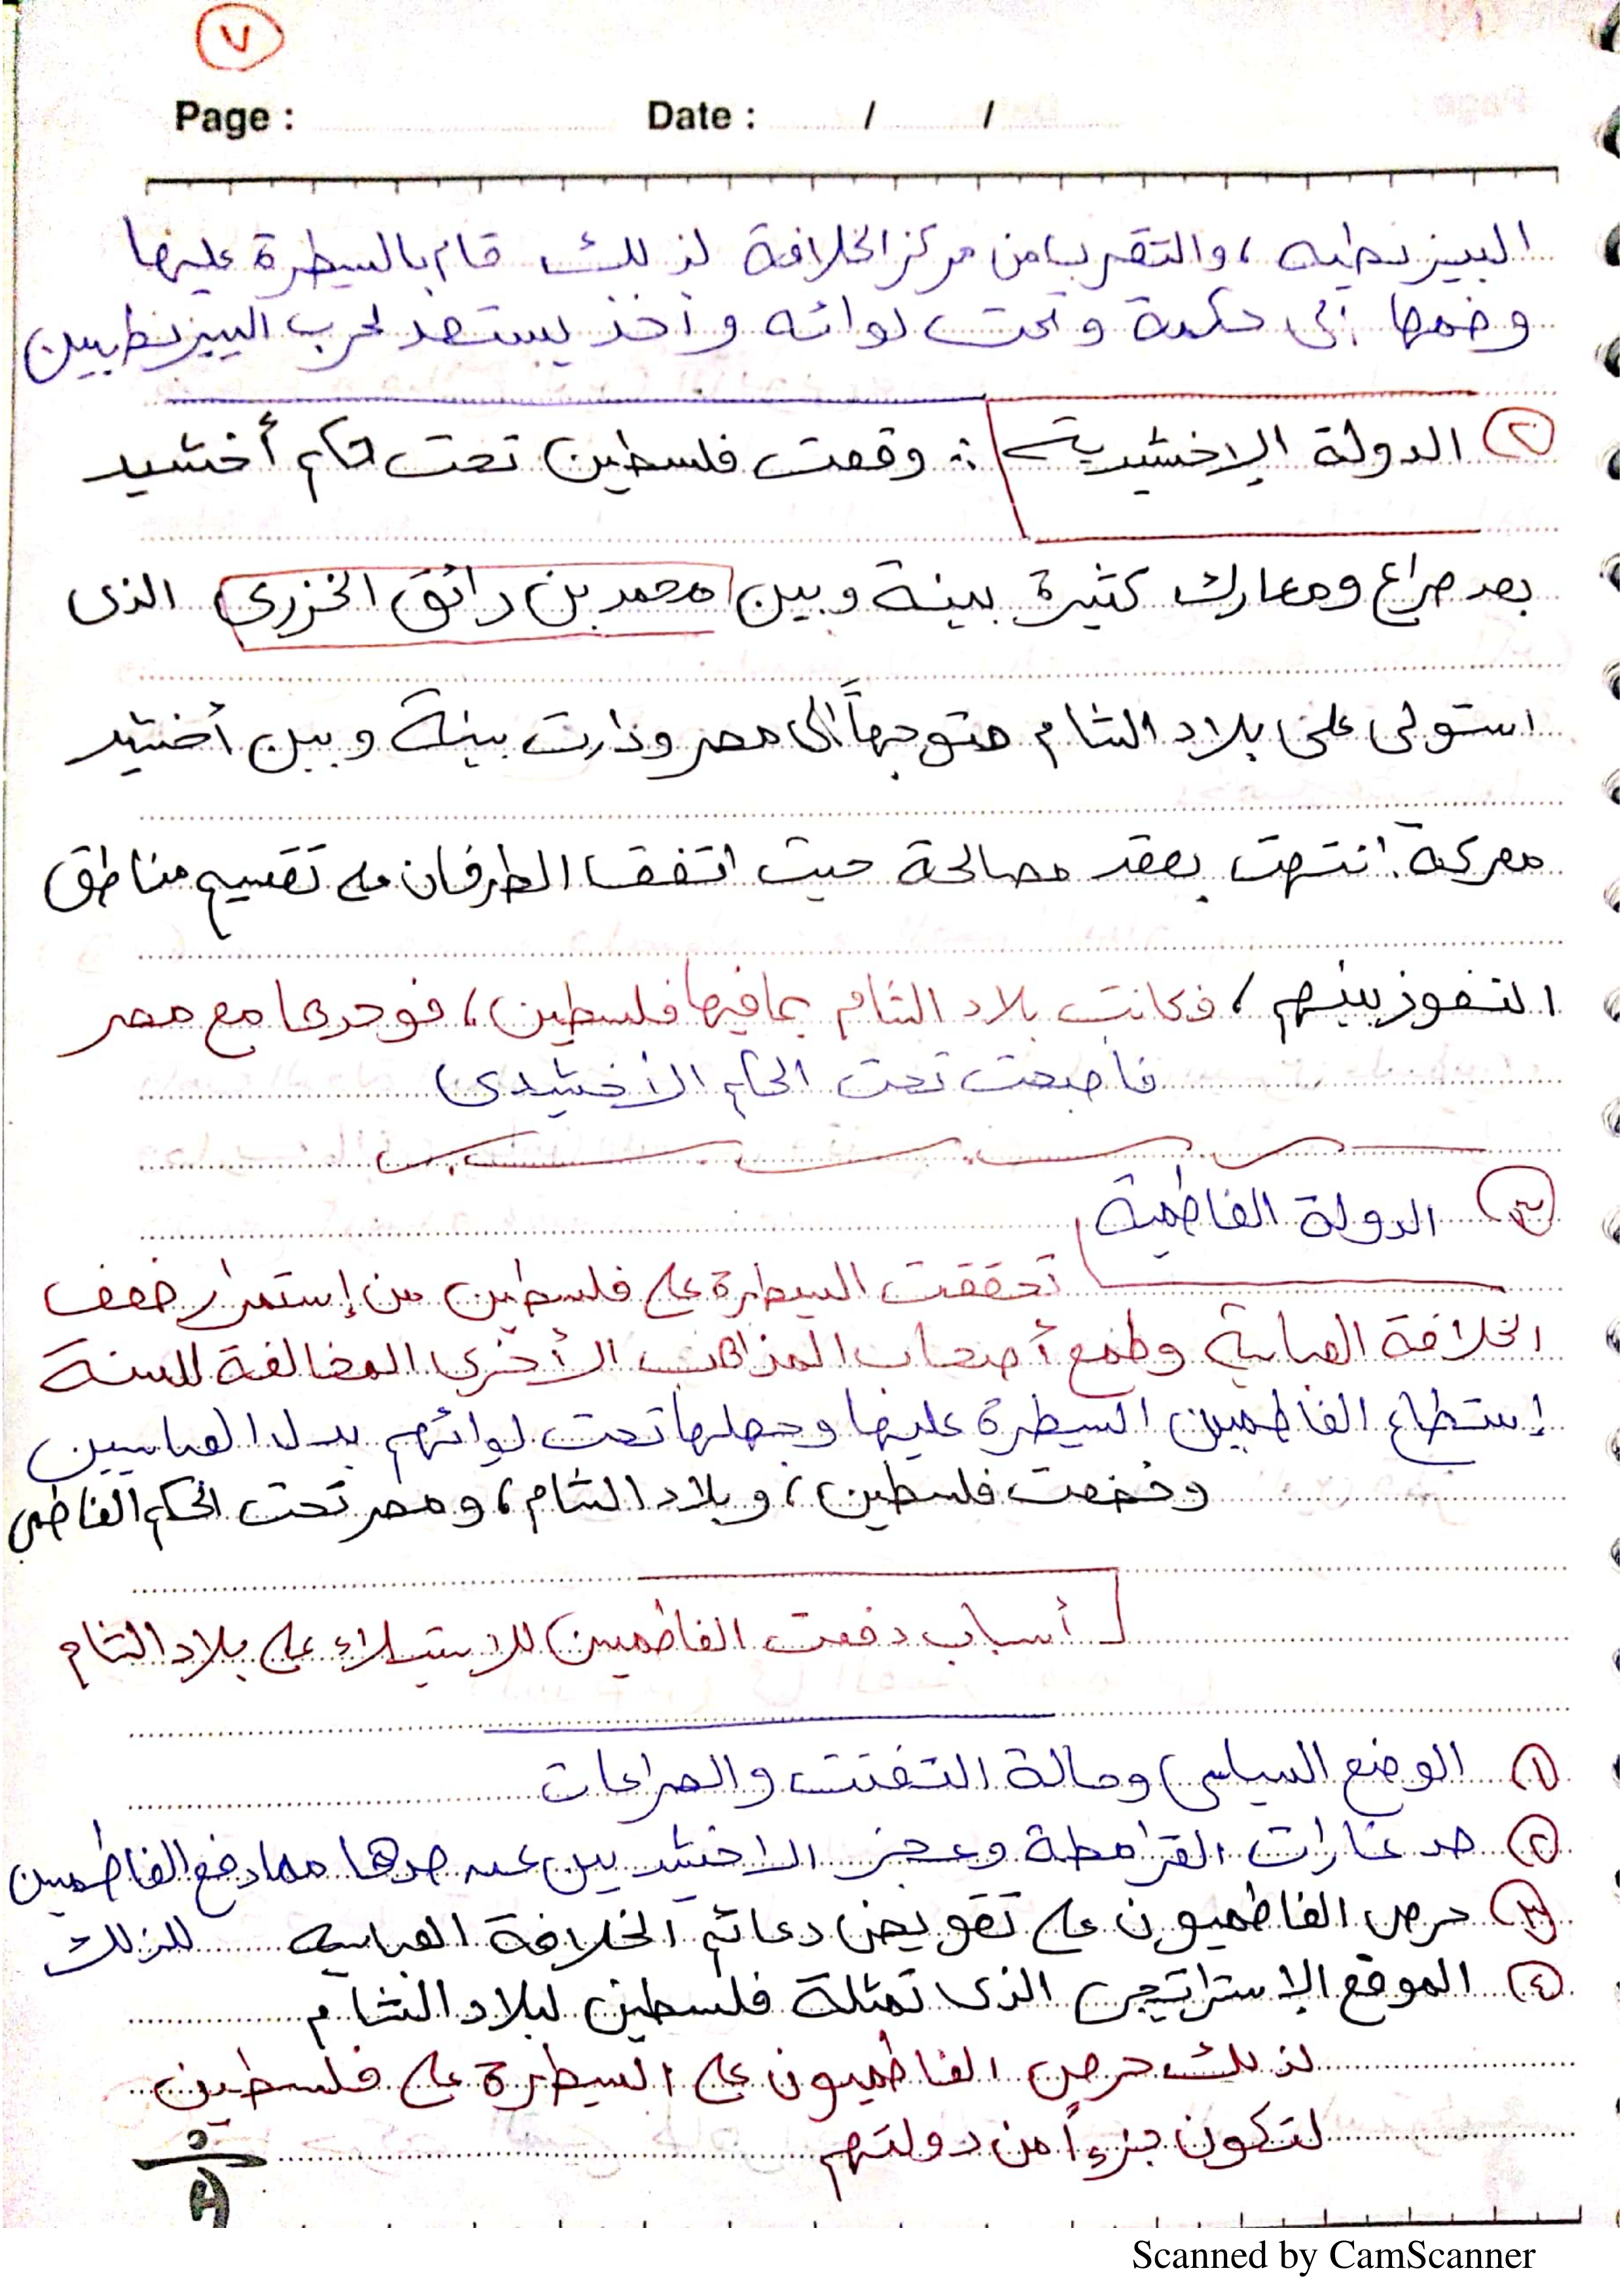 ٧
Page : Date : / /
البيزنطيه ، والتقرب من مركز الخلافة لذلك قام بالسيطرة عليها
وضمها إلى حكمة وتحت لوائه وأخذ يستعد لحرب البيزنطيين
٢ الدولة الإخشيدية :- وقعت فلسطين تحت حكم أخشيد
بعد صراع ومعارك كثيرة بينة وبين محمد بن رائق الخزري الذى
استولى على بلاد الشام متوجهاً الى مصر ودارت بينة وبين أخشيد
معركة انتهت بعقد مصالحة حيث اتفقا الطرفان على تقسيم مناطق
النفوذ بينهم ، فكانت بلاد الشام بما فيها فلسطين ، فوحدها مع مصر
فأصبحت تحت الحكم الأخشيدى
٣ الدولة الفاطمية
تحققت السيطرة على فلسطين من إستمرار ضعف
الخلافة العباسية وطمع أصحاب المذاهب الأخرى المخالفة للسنة
إستطاع الفاطميين السيطرة عليها وجعلها تحت لوائهم بدل العباسيين
وخضعت فلسطين ، وبلاد الشام ، ومصر تحت الحكم الفاطمي
أسباب دفعت الفاطميين للاستيلاء على بلاد الشام
١ الوضع السياسي وحالة التفتت والصراعات
٢ صد غارات القرامطة وعجز الاخشيديين عن صدها مما دفع الفاطميين
للذلك
٣ حرص الفاطميون على تقويض دعائم الخلافة العباسيه
٤ الموقع الإستراتيجى الذى تمثلة فلسطين لبلاد الشام
لذلك حرص الفاطميون على السيطرة على فلسطين
لتكون جزءاً من دولتهم
Scanned by CamScanner